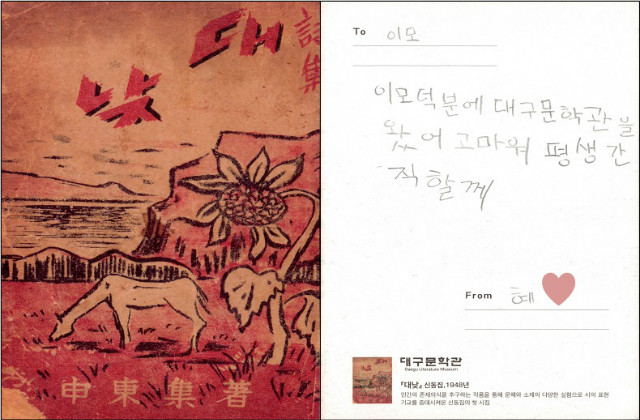 詩集
대낮
申東集著
To 이모
이모덕분에 대구문학관을
왔어 고마워 평생 간
직할께
From 혜
대구문학관
Daegu Literature Museum
『대낮』 신동집, 1948년
인간의 존재의식을 추구하는 작품을 통해 문체와 소재의 다양한 실험으로 시의 표현
기교를 증대시켜온 신동집의 첫 시집